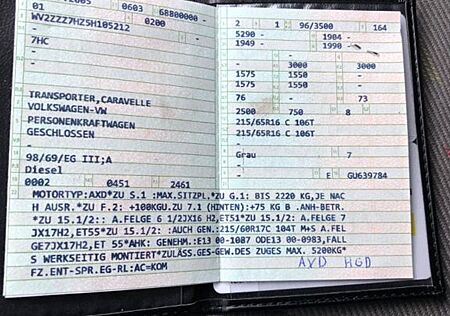 2005 0603 68800000
01 0200 -
WV2ZZZ7HZ5H105212
-
7HC
-
-
TRANSPORTER,CARAVELLE
VOLKSWAGEN-VW
PERSONENKRAFTWAGEN
GESCHLOSSEN
-
98/69/EG III;A
Diesel
0002 0451 2461
2 1 96/3500 164
5290 - 1904 -
1949 - 1990 -
- 3000 3000
1575 1550 -
1575 1550 -
76 - 73
2500 750 8
215/65R16 C 106T
215/65R16 C 106T
-
Grau 7
- E GU639784
MOTORTYP:AXD*ZU S.1 :MAX.SITZPL.*ZU G.1: BIS 2220 KG,JE NAC
H AUSR.*ZU F.2: +100KGU.ZU 7.1 (HINTEN):+75 KG B .ANH-BETR.
*ZU 15.1/2:: A.FELGE 6 1/2JX16 H2,ET51*ZU 15.1/2: A.FELGE 7
JX17H2,ET55*ZU 15.1/2: :AUCH GEN.:215/60R17C 104T M+S A.FEL
GE7JX17H2,ET 55*AHK: GENEHM.:E13 00-1087 ODE13 00-0983,FALL
S WERKSEITIG MONTIERT*ZULÄSS.GES-GEW.DES ZUGES MAX. 5200KG*
FZ.ENT-SPR.EG-RL:AC=KOM
AXD HGD